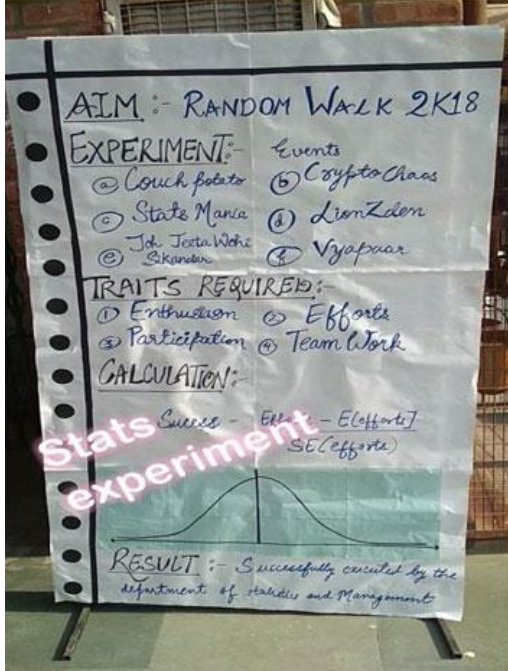 AIM :- RANDOM WALK 2K18
EXPERIMENT:- Events
(a) Couch potato (b) CryptoChaos
(c) Stats Mania (d) LionZden
(e) Joh Jeeta Wohi Sikandar (f) Vyapaar
TRAITS REQUIRED:-
(1) Enthusiasm (2) Efforts
(3) Participation (4) Team Work
CALCULATION:-
Sucess - - E[efforts]
SE(efforts)
Stats
experiment
RESULT :- Successfully executed by the
department of statistics and Management